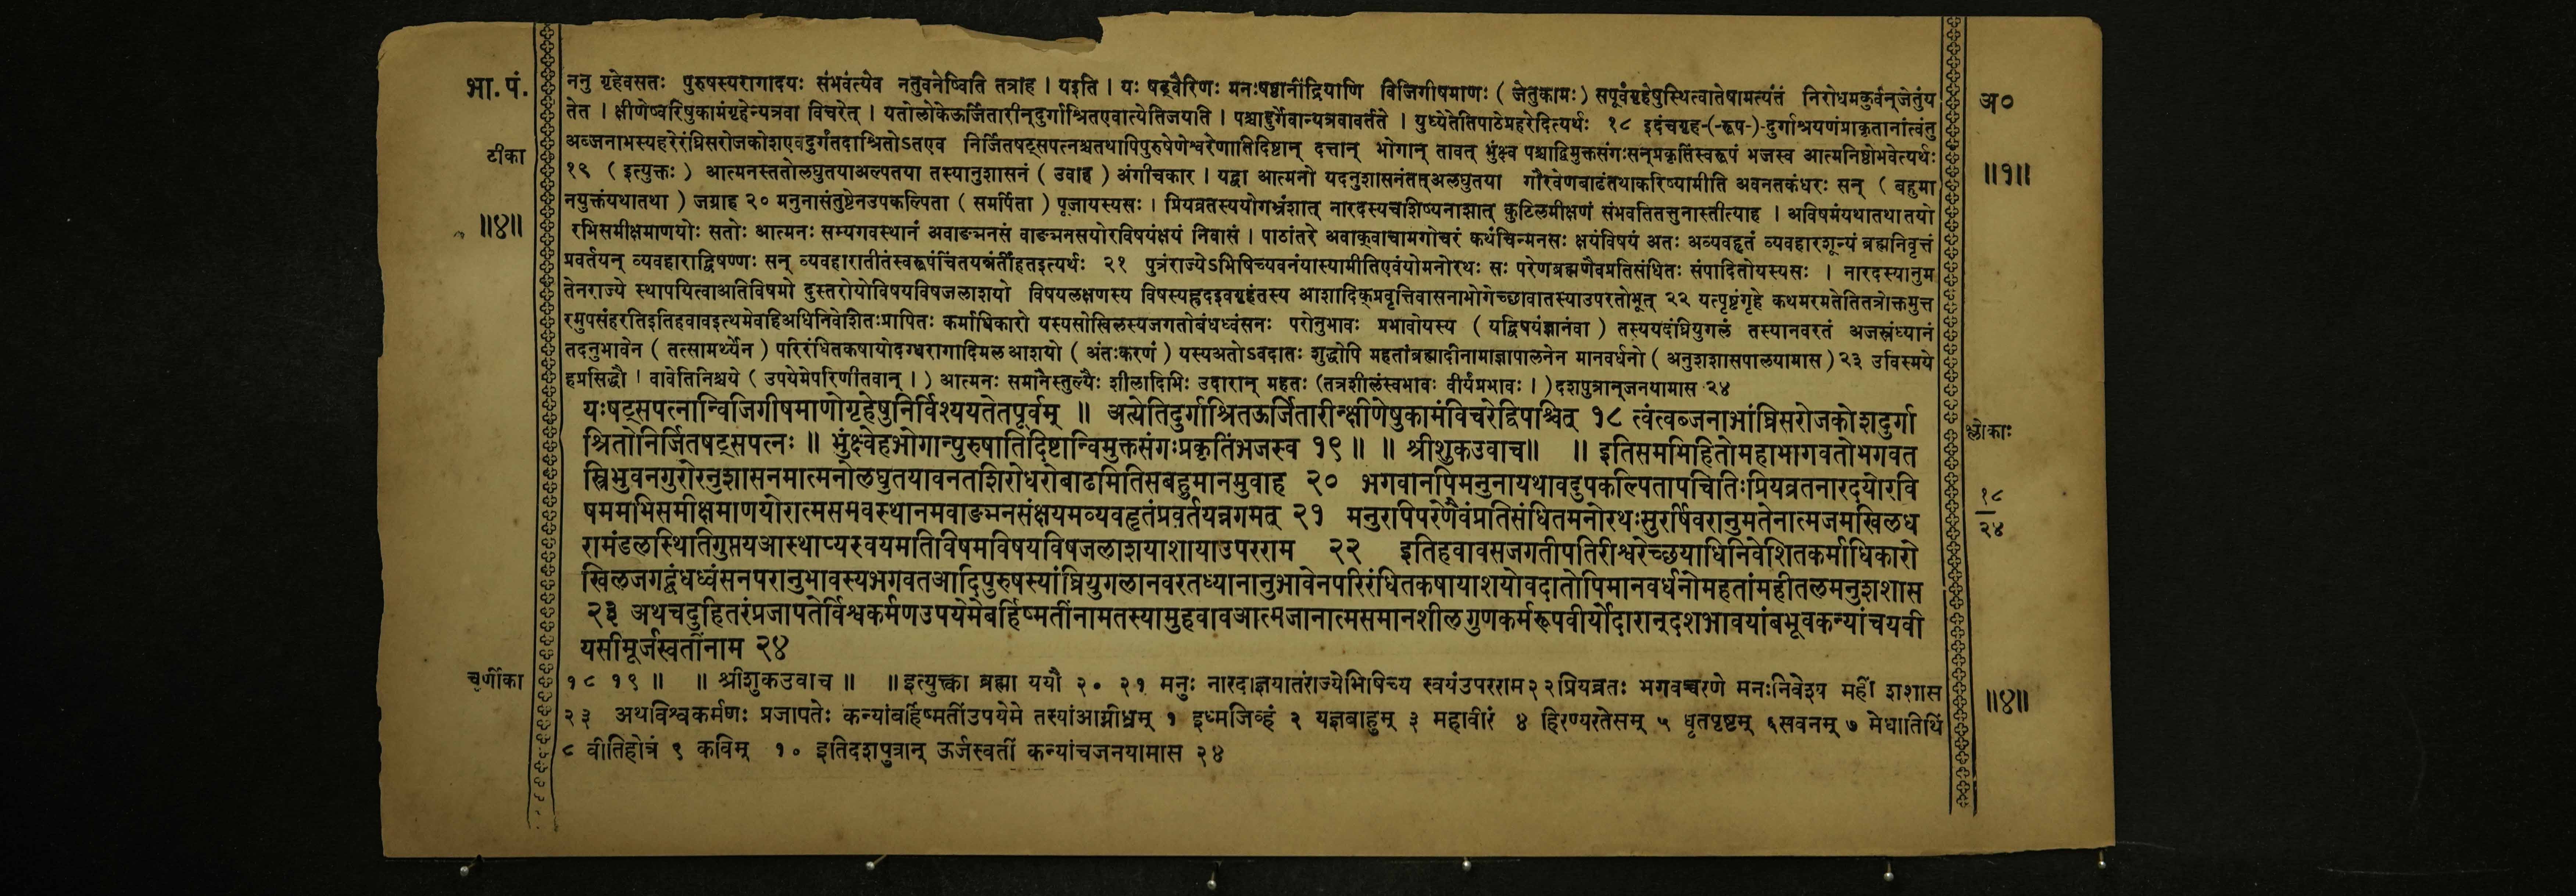 भा. पं.
टीका
॥४॥
ननु गृहेवसतः पुरुषस्यरागादयः संभवंत्येव नतुवनेष्विति तत्राह । यइति । यः षड्वैरिणः मनःषष्ठानींद्रियाणि विजिगीषमाणः ( जेतुकामः ) सपूर्वंगृहेषुस्थित्वातेषामत्यंतं निरोधमकुर्वन्जेतुंय
तेत । क्षीणेष्वरिषुकामंगृहेन्यत्रवा विचरेत् । यतोलोकेऊर्जितारीन्दुर्गाश्रितएवात्येतिजयति । पश्चाद्दुर्गेवान्यत्रवावर्तते । युध्येतेतिपाठेप्रहरेदित्यर्थः १८ इदंचगृह-(-रूप-)-दुर्गाश्रयणंप्राकृतानांत्वंतु
अब्जनाभस्यहरेरंघ्रिसरोजकोशएवदुर्गंतदाश्रितोऽतएव निर्जितषट्सपत्नश्चतथापिपुरुषेणेश्वरेणातिदिष्टान् दत्तान् भोगान् तावत् भुंक्ष्व पश्चाद्विमुक्तसंगःसन्प्रकृतिंस्वरूपं भजस्व आत्मनिष्ठोभवेत्यर्थः
१९ ( इत्युक्तः ) आत्मनस्ततोलघुतयाअल्पतया तस्यानुशासनं ( उवाह ) अंगीचकार । यद्वा आत्मनो यदनुशासनंतत्अलघुतया गौरवेणबाढंतथाकरिष्यामीति अवनतकंधरः सन् ( बहुमा
नयुक्तंयथातथा ) जग्राह २० मनुनासंतुष्टेनउपकल्पिता ( समर्पिता ) पूजायस्यसः । प्रियव्रतस्ययोगभ्रंशात् नारदस्यचशिष्यनाशात् कुटिलमीक्षणं संभवतितत्तुनास्तीत्याह । अविषमंयथातथातयो
रभिसमीक्षमाणयोः सतोः आत्मनः सम्यगवस्थानं अवाङ्मनसं वाङ्मनसयोरविषयंक्षयं निवासं । पाठांतरे अवाक्वाचामगोचरं कथंचिन्मनसः क्षयंविषयं अतः अव्यवहृतं व्यवहारशून्यं ब्रह्मनिवृत्तं
प्रवर्तयन् व्यवहाराद्विषण्णः सन् व्यवहारातीतंस्वरूपंचिंतयन्नंतर्हितइत्यर्थः २१ पुत्रंराज्येऽभिषिच्यवनंयास्यामीतिएवंयोमनोरथः सः परेणब्रह्मणैवप्रतिसंधितः संपादितोयस्यसः । नारदस्यानुम
तेनराज्ये स्थापयित्वाअतिविषमो दुस्तरोयोविषयविषजलाशयो विषयलक्षणस्य विषस्यह्रदइवगृहंतस्य आशादिक्प्रवृत्तिवासनाभोगेच्छावातस्याउपरतोभूत् २२ यत्पृष्टंगृहे कथमरमतेतितत्रोक्तमुत्त
रमुपसंहरतिइतिहवावइत्थमेवहिअधिनिवेशितःप्रापितः कर्माधिकारो यस्यसोखिलस्यजगतोबंधध्वंसनः परोनुभावः प्रभावोयस्य ( यद्विषयंज्ञानंवा ) तस्ययदंघ्रियुगलं तस्यानवरतं अजस्रंध्यानं
तदनुभावेन ( तत्सामर्थ्येन ) परिरंधितकषायोदग्धरागादिमल आशयो ( अंतःकरणं ) यस्यअतोऽवदातः शुद्धोपि महतांब्रह्मादीनामाज्ञापालनेन मानवर्धनो ( अनुशशासपालयामास ) २३ उविस्मये
हप्रसिद्धौ । वावेतिनिश्चये ( उपयेमेपरिणीतवान् । ) आत्मनः समानैस्तुल्यैः शीलादिभिः उदारान् महतः (तत्रशीलंस्वभावः वीर्यंप्रभावः । ) दशपुत्रान्जनयामास २४
यःषट्सपत्नान्विजिगीषमाणोगृहेषुनिर्विश्ययतेतपूर्वम् ॥ अत्येतिदुर्गाश्रितऊर्जितारीन्क्षीणेषुकामंविचरेद्विपश्चित् १८ त्वंत्वब्जनाभांघ्रिसरोजकोशदुर्गा
श्रितोनिर्जितषट्सपत्नः ॥ भुंक्ष्वेहभोगान्पुरुषातिदिष्टान्विमुक्तसंगःप्रकृतिंभजस्व १९ ॥ ॥ श्रीशुकउवाच॥ ॥ इतिसमभिहितोमहाभागवतोभगवत
स्त्रिभुवनगुरोरनुशासनमात्मनोलघुतयावनतशिरोधरोबाढमितिसबहुमानमुवाह २० भगवानपिमनुनायथावदुपकल्पितापचितिःप्रियव्रतनारदयोरवि
षममभिसमीक्षमाणयोरात्मसमवस्थानमवाङ्मनसंक्षयमव्यवहृतंप्रवर्तयन्नगमत् २१ मनुरपिपरेणैवंप्रतिसंधितमनोरथःसुरर्षिवरानुमतेनात्मजमखिलध
रामंडलस्थितिगुप्तयआस्थाप्यस्वयमतिविषमविषयविषजलाशयाशायाउपरराम २२ इतिहवावसजगतीपतिरीश्वरेच्छयाधिनिवेशितकर्माधिकारो
खिलजगद्बंधध्वंसनपरानुभावस्यभगवतआदिपुरुषस्यांघ्रियुगलानवरतध्यानानुभावेनपरिरंधितकषायाशयोवदातोपिमानवर्धनोमहतांमहीतलमनुशशास
२३ अथचदुहितरंप्रजापतेर्विश्वकर्मणउपयेमेबर्हिष्मतींनामतस्यामुहवावआत्मजानात्मसमानशीलगुणकर्मरूपवीर्योदारान्दशभावयांबभूवकन्यांचयवी
यसीमूर्जस्वतींनाम २४
चूर्णीका
१८ १९ ॥ ॥ श्रीशुकउवाच ॥ ॥ इत्युक्त्वा ब्रह्मा ययौ २० २१ मनुः नारदाज्ञयातंराज्येभिषिच्य स्वयंउपरराम२२प्रियव्रतः भगवच्चरणे मनःनिवेश्य महीं शशास
२३ अथविश्वकर्मणः प्रजापतेः कन्यांबर्हिष्मतींउपयेमे तस्यांआग्नीध्रम् १ इध्मजिव्हं २ यज्ञबाहुम् ३ महावीरं ४ हिरण्यरेतसम् ५ धृतपृष्टम् ६सवनम् ७ मेधातिथिं
८ वीतिहोत्रं ९ कविम् १० इतिदशपुत्रान् ऊर्जस्वतीं कन्यांचजनयामास २४
अ०
॥१॥
श्लोकाः
१८
२४
॥४॥